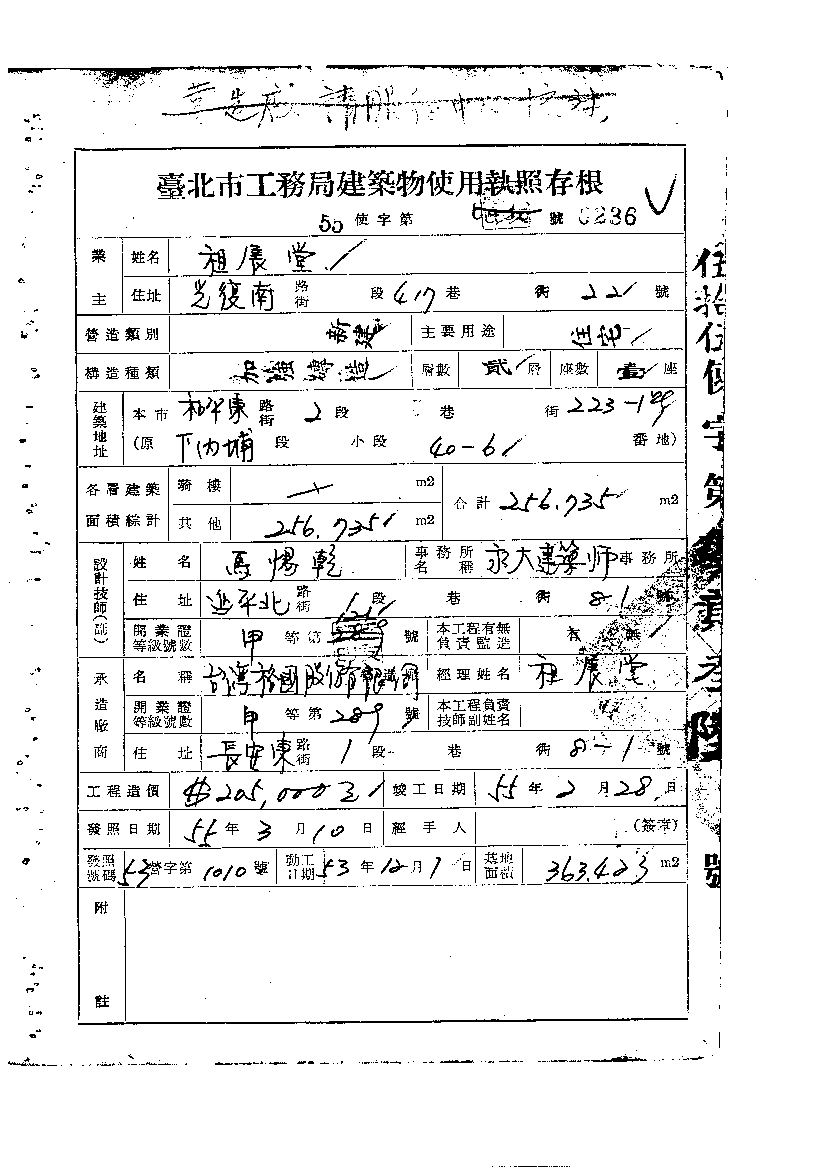 臺北市工務局建築物使用執照存根
55 使字第 號 0236
業主 姓名 祖展堂
住址 光復南 路街 段 417 巷 衖 221 號
營造類別 新建 主要用途 住宅
構造種類 加強磚造 層數 貳 層 座數 壹 座
建築地址 本市 和平東 路街 2 段 巷 街 223-1號
(原 下內埔 段 小段 40-61 番地)
各層建築面積綜計 騎樓 m2 合計 256.735 m2
其他 256.735 m2
設計技師(副) 姓名 馮惕乾 事務所名稱 永大建築师 事務所
住址 延平北 路街 1 段 巷 衖 81 號
開業證等級號數 甲 等第 號 本工程有無負責監造 有 無
承造廠商 名稱 台灣 股份有限公司 經理姓名 祖展堂
開業證等級號數 甲 等第 289 號 本工程負責技師副姓名
住址 長安東 路街 1 段 巷 衖 8-1 號
工程造價 $205,000元 竣工日期 55 年 2 月 28 日
發照日期 55 年 3 月 10 日 經手人 (簽章)
發照號碼 53 營字第 1010 號 動工日期 53 年 12 月 1 日 基地面積 363.423 m2
附註
伍拾伍使字第 貳叁陸號